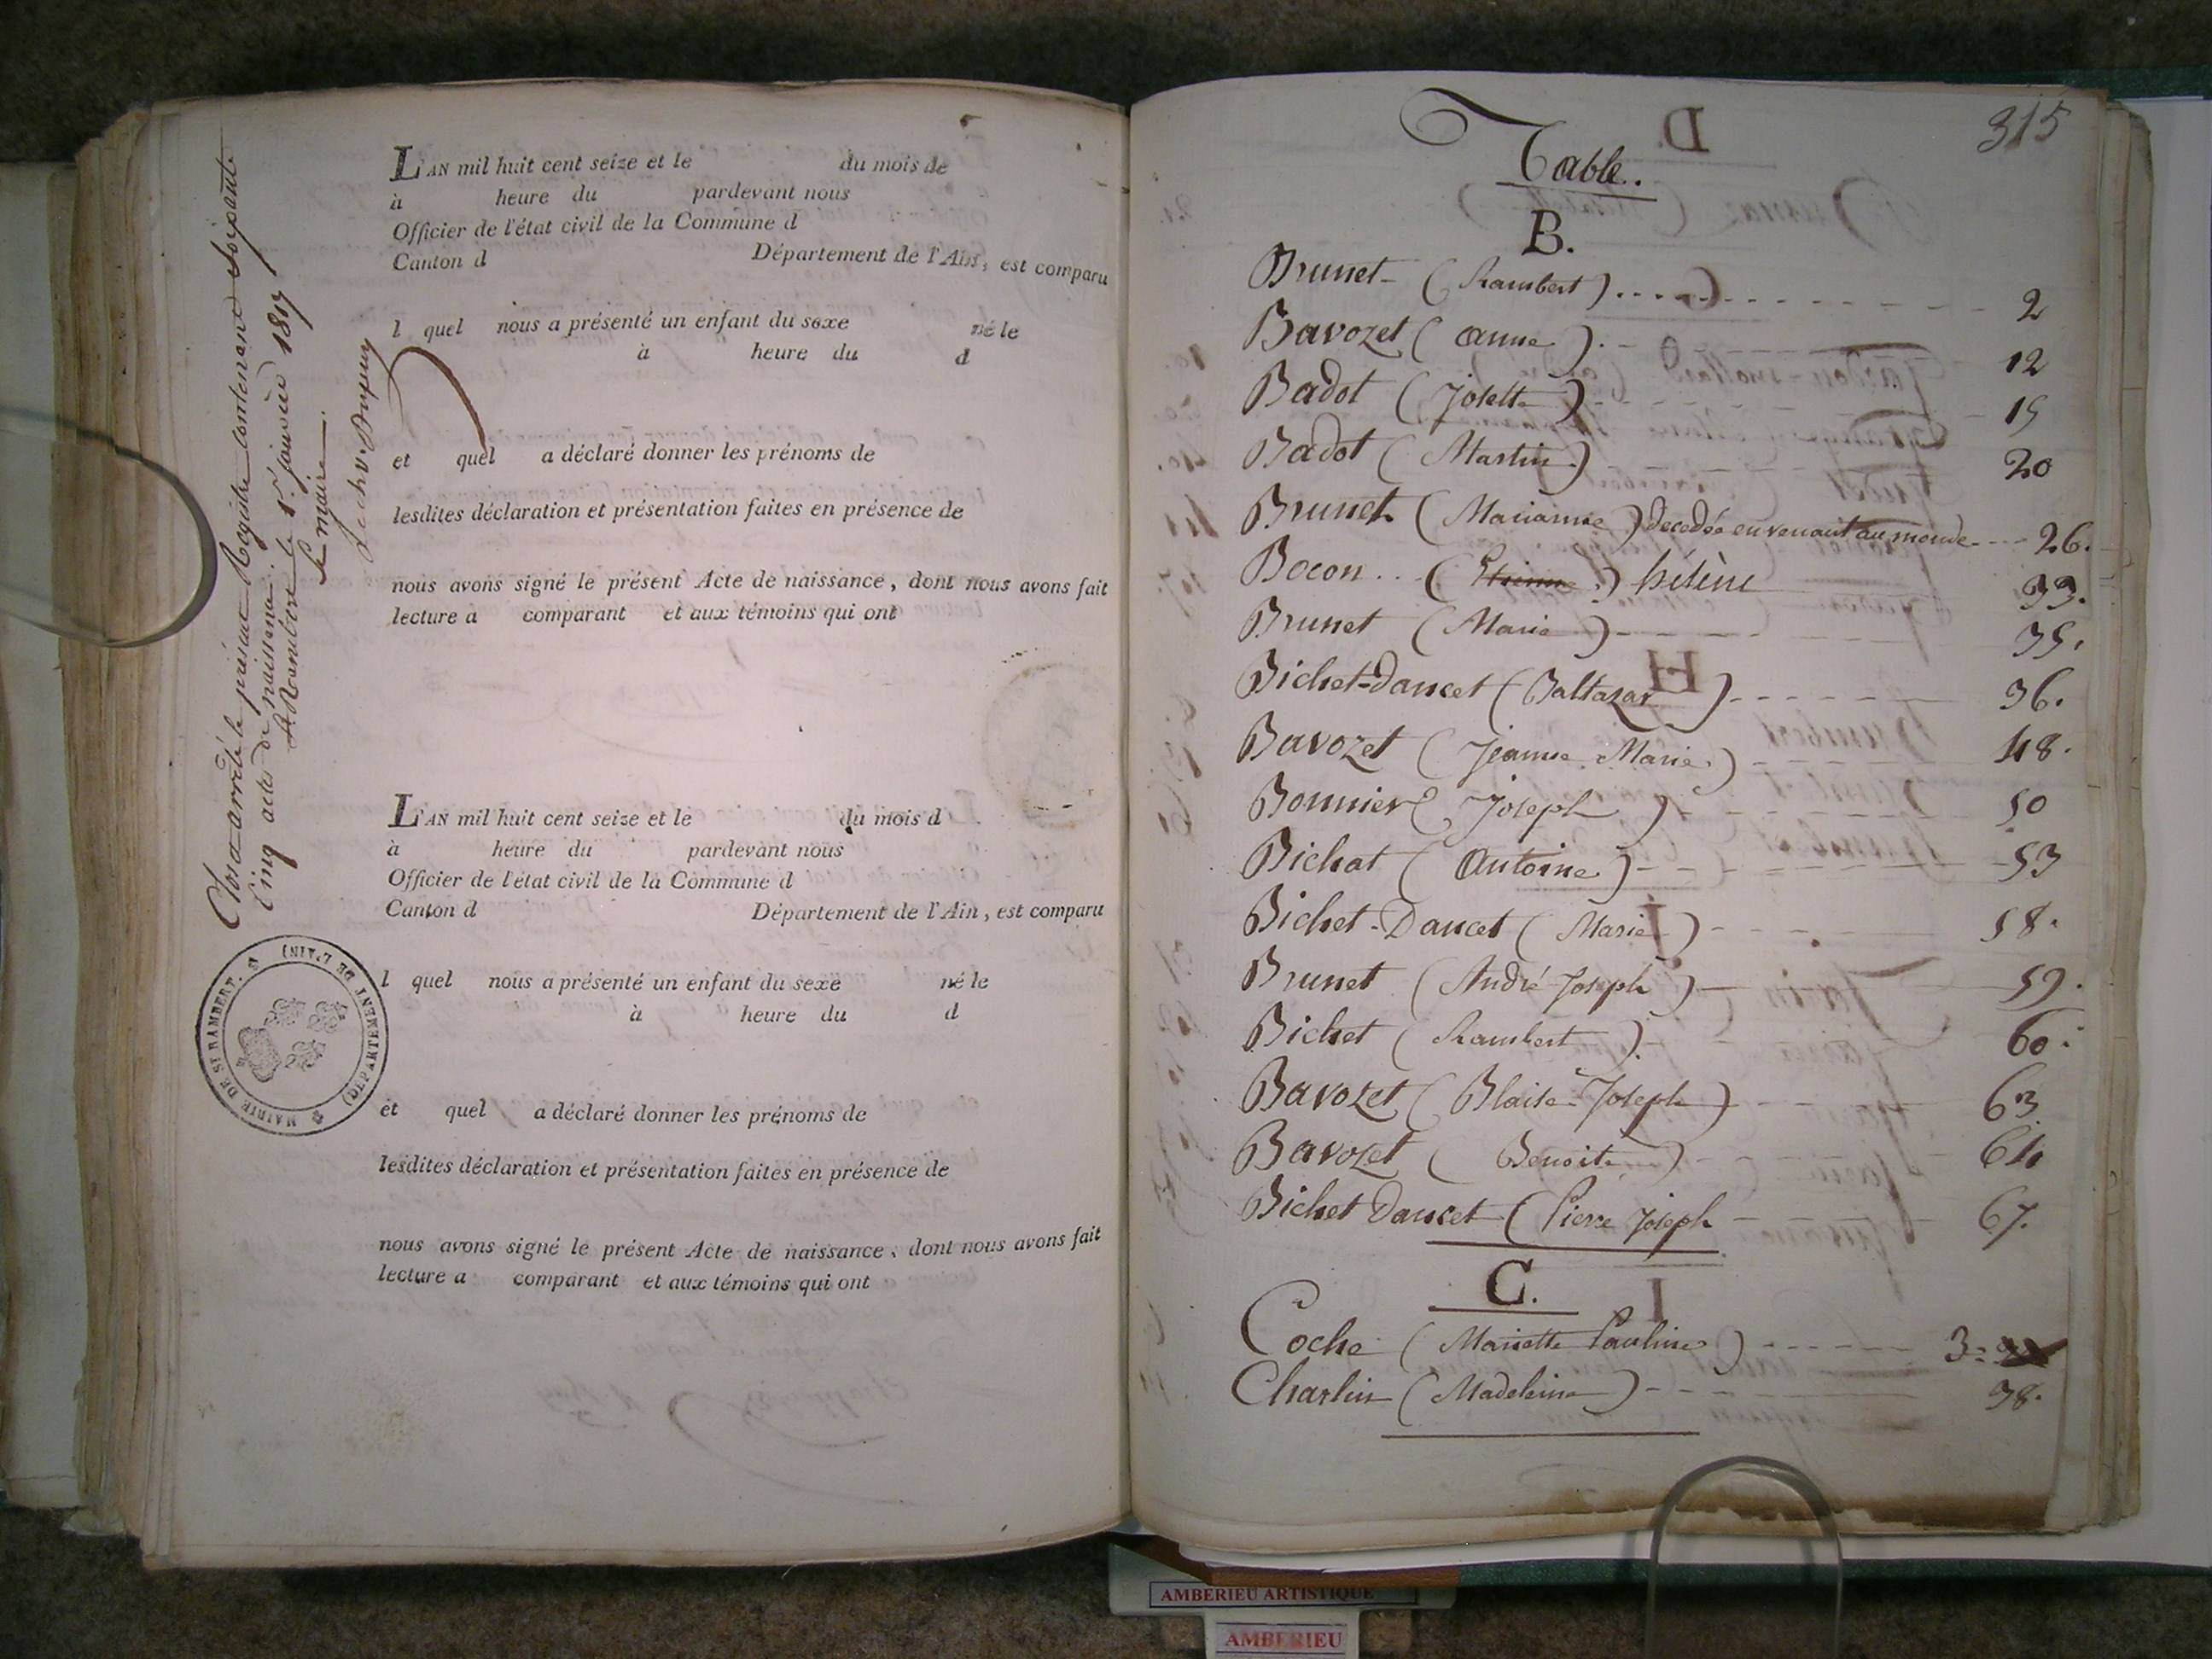 Clos et arrêté le présent Registre contenant Soixante
Cinq actes de naissance.
A St Rambert le 1er. janvier 1817
Le maire
L'AN mil huit cent seize et le du mois de
à heure du pardevant nous
Officier de l'état civil de la Commune d
Canton d Département de l'Ain, est comparu
l quel nous a présenté un enfant du sexe né le
à heure du d
et quel a déclaré donner les prénoms de
lesdites déclaration et présentation faites en présence de
nous avons signé le présent Acte de naissance, dont nous avons fait
lecture a comparant et aux témoins qui ont
L'AN mil huit cent seize et le du mois d
à heure du pardevant nous
Officier de l'état civil de la Commune d
Canton d Département de l'Ain, est comparu
l quel nous a présenté un enfant du sexe né le
à heure du d
et quel a déclaré donner les prénoms de
lesdites déclaration et présentation faites en présence de
nous avons signé le présent Acte de naissance, dont nous avons fait
lecture a comparant et aux témoins qui ont
MAIRIE DE ST RAMBERT. (DEPARTEMENT DE L'AIN)
315
Table.
B.
Brunet (Rambert) 2
Bavozet (Anne) 12
Badot (Josette) 15
Badot (Martin) 20
Brunet (Marianne) decedée en venant au monde 26.
Bocon (Etienne) hélène 33.
Brunet (Marie) 35.
Bichet-Dancet (Baltazar) 36.
Bavozet (Jeanne Marie) 48.
Bonnier (Joseph) 50
Bichat (Antoine) 53
Bichet-Dancet (Marie) 58.
Brunet (André Joseph) 59.
Bichet (Rambert) 60.
Bavozet (Blaise Joseph) 63
Bavozet (Benoite) 64
Bichet Dancet (Pierre Joseph 67.
C.
Coche (Mariette Pauline) 3
Charlin (Madeleine) 38.
AMBERIEU ARTISTIQUE
AMBERIEU